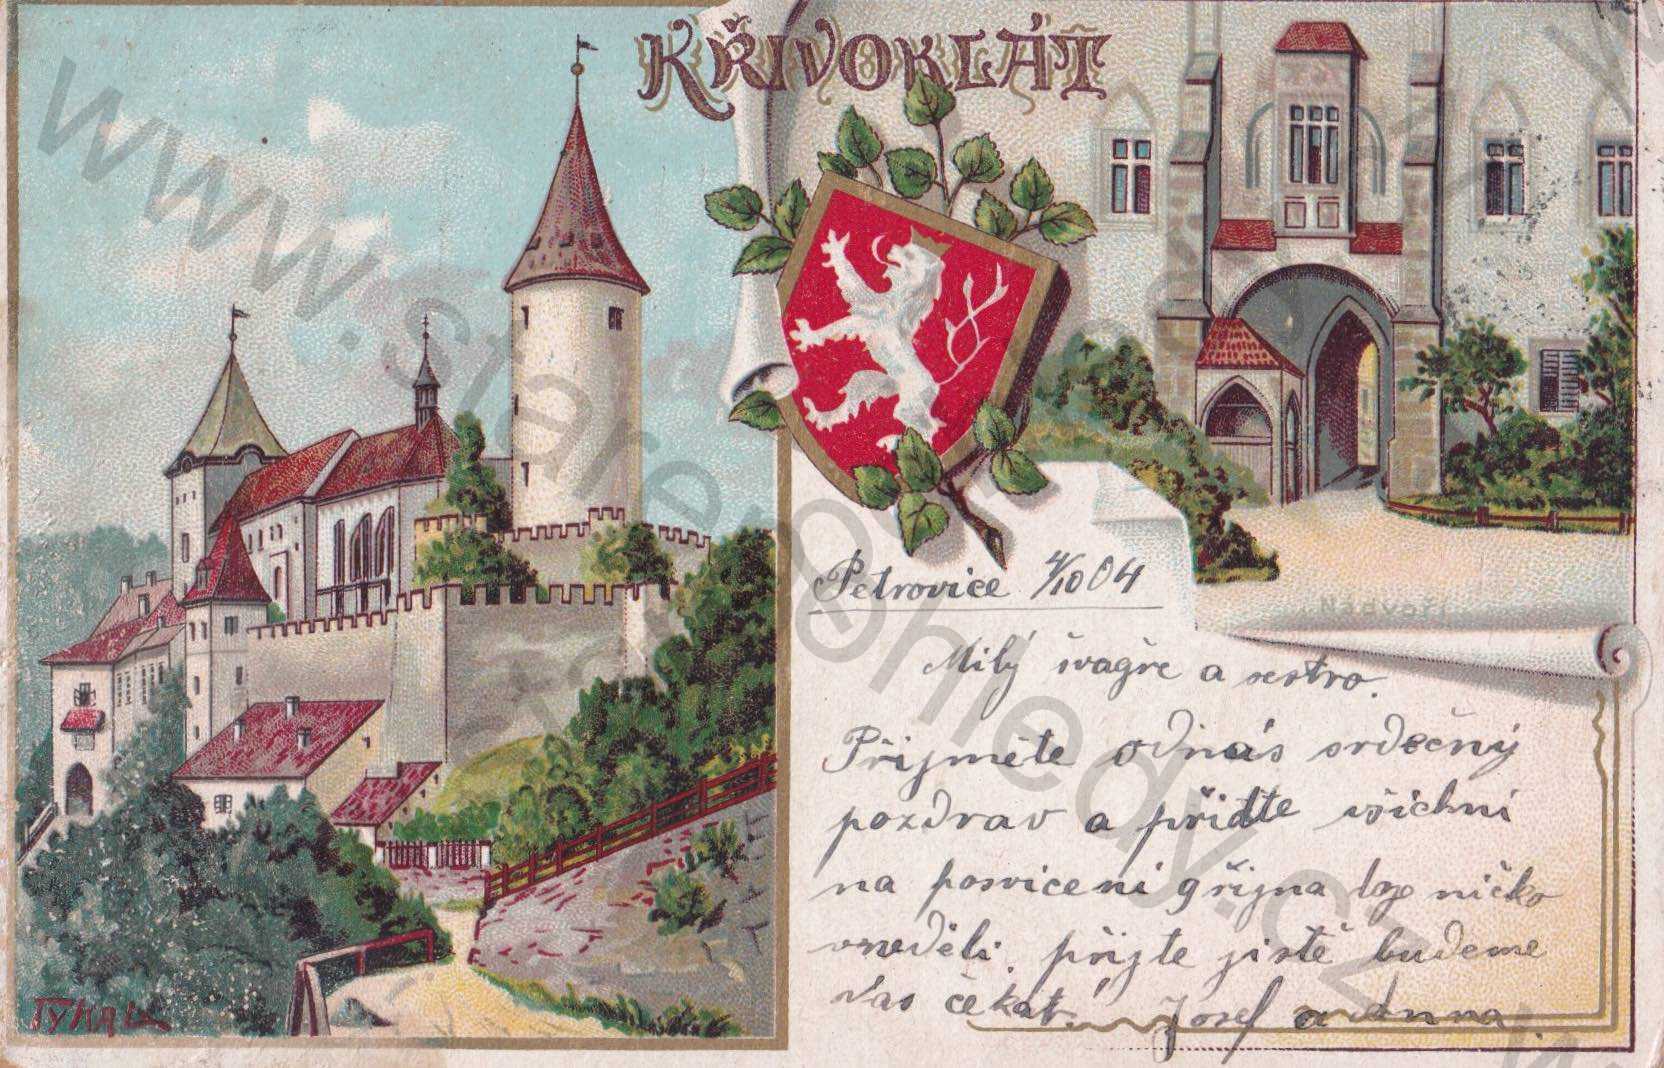 KŘIVOKLÁT
Nádvoří
Petrovice 4/10 04
Milý švagře a sestro.
Přijměte odnás srdečný
pozdrav a přidte všichni
na posviceni 9 řijna
vneděli, přijte jistě budeme
Vas čekat. Josef a Anna.
TYKAL
www.starepohledy.cz